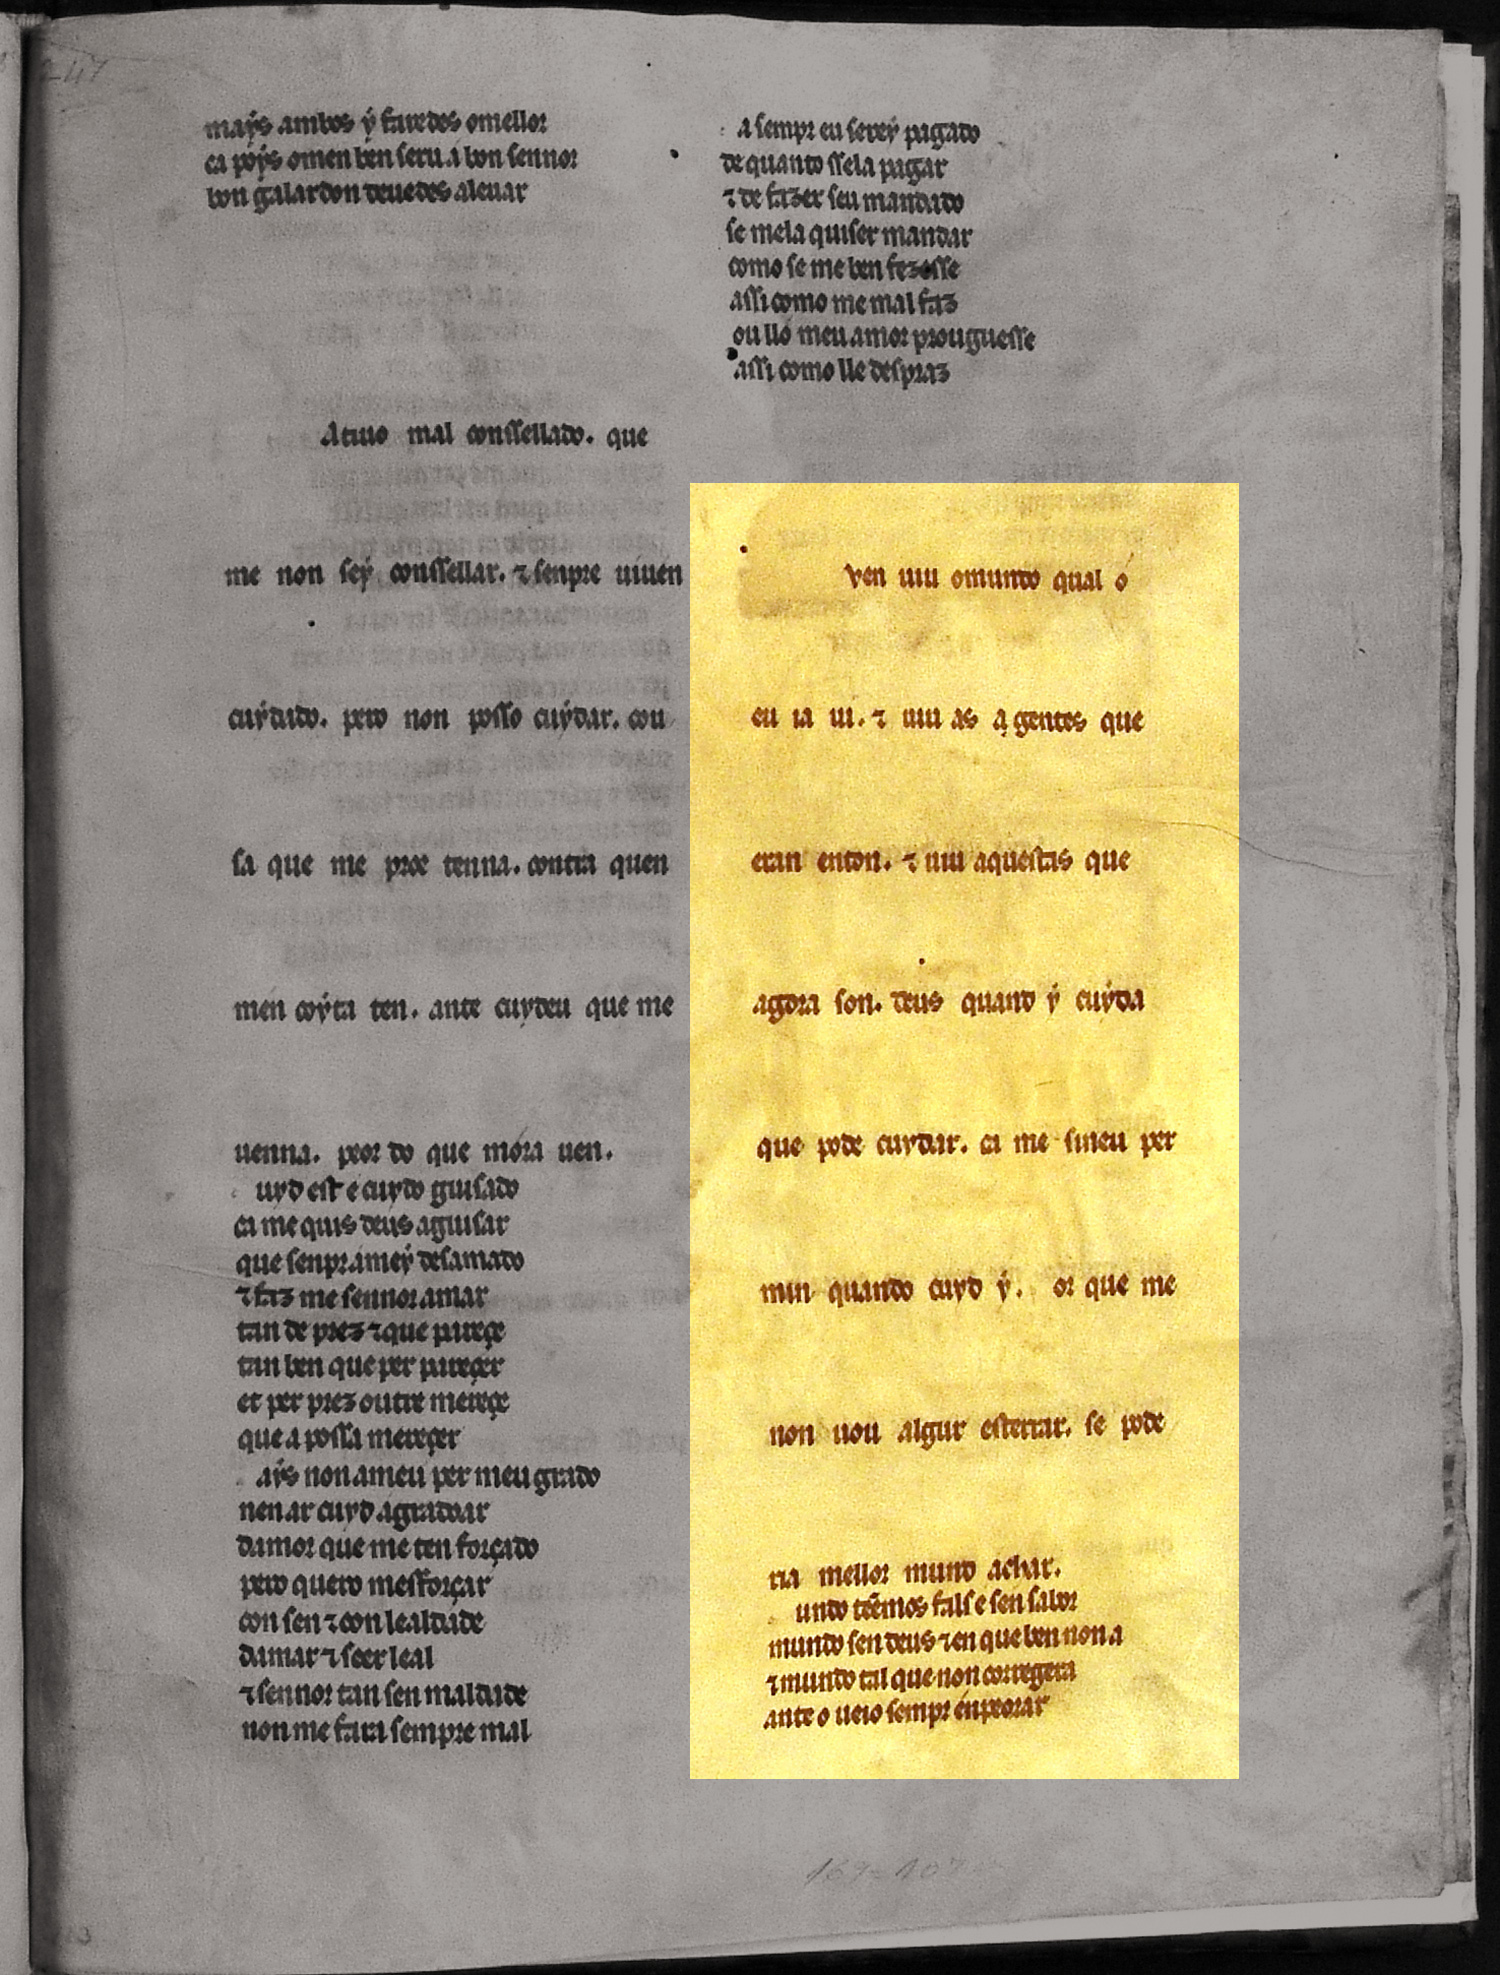 247
mays ambos ẏ faredes omellor
ca poẏs omen ben seru.a bon sennor
bon galardon deuedes aleuar
Atiuo mal conssellado. que
me non seẏ conssellar. ⁊ senpre uiuen
cuẏdado. pero non posso cuẏdar. cou
sa que me proe tenna. contra quen
men coẏta ten. ante cuydeu que me
uenna. peor do que móra uen.
uyd est e cuydo guisado
ca me quis deus aguisar
que senpr.ameẏ desamado
⁊ faz me sennor amar
tan de prez ⁊ que pareçe
tan ben que per pareçer
et per prez outre mereçe
que a possa mereçer
aẏs non ameu per meu grado
nen ar cuyd agradoar
damor que me ten forçado
pero quero mesforçar
con sen ⁊ con lealdade
damar ⁊ seer leal
⁊ sennor tan sen maldade
non me fara sempre mal
a sempr eu sereẏ pagado
de quanto ssela pagar
⁊ de fazer seu mandado
se mela quiser mandar
como se me ben fezesse
assi como me mal faz
ou lló meu amor prouguesse
assi como lle despraz
ven uiu omundo qual ó
eu ia ui. ⁊ uiu as a gentes que
eran enton. ⁊ uiu aquestas que
agora son. deus quand ẏ cuẏda
que pode cuydar. ca me sineu per
min quando cuyd ẏ. or que me
non uou algur esterrar. se pode
ria mellor mund achar.
undo tẽemos fals e sen sabor
mundo sen deus ⁊ en que ben non a
⁊ mundo tal que non corregera
ante o ueio sempr énpeorar
169-107